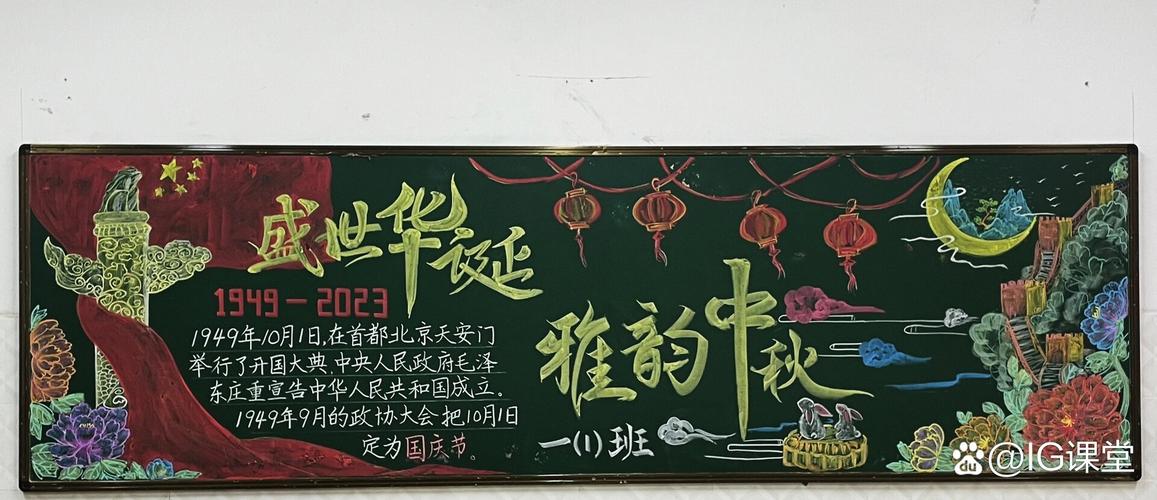 盛世华诞
1949-2023
1949年10月1日,在首都北京天安门
举行了开国大典,中央人民政府毛泽
东庄重宣告中华人民共和国成立。
1949年9月的政协大会把10月1日
定为国庆节。
雅韵中秋
一(1)班
@IG课堂